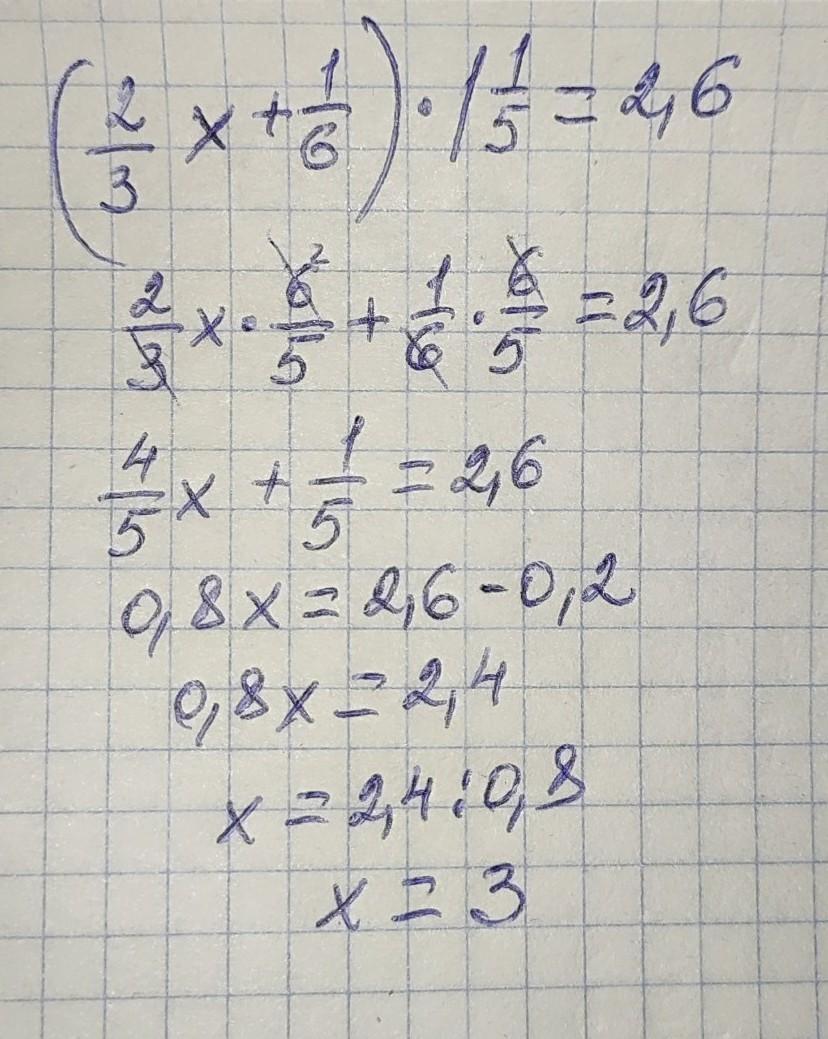 (2/3 x + 1/6) · 1 1/5 = 2,6
2/3 x · 6²/5 + 1/6 · 6/5 = 2,6
4/5 x + 1/5 = 2,6
0,8x = 2,6 - 0,2
0,8x = 2,4
x = 2,4 : 0,8
x = 3